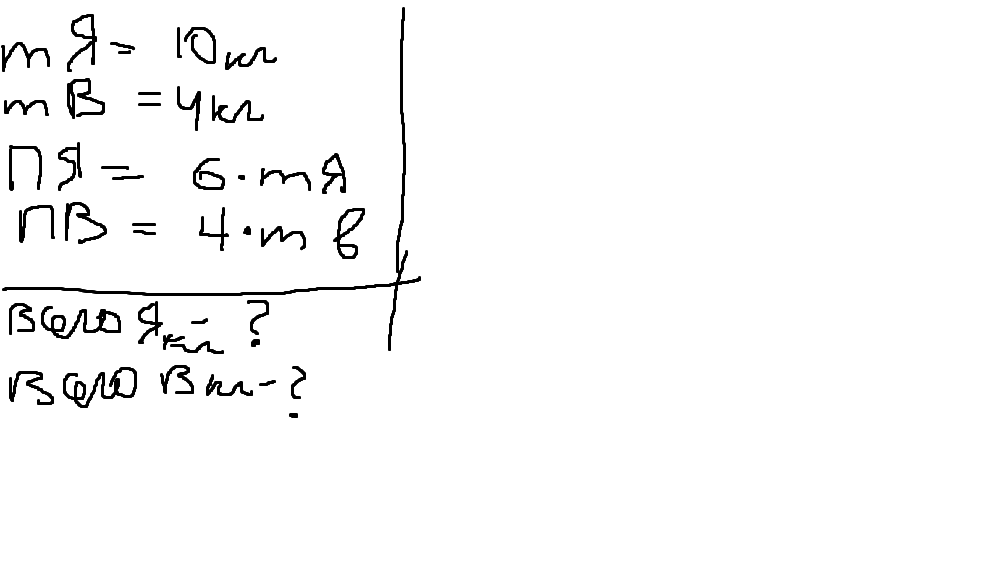 m Я = 10кг
m В = 4кг
П Я = 6 · m Я
ПВ = 4 · m в
всего Я кг - ?
всего В кг - ?